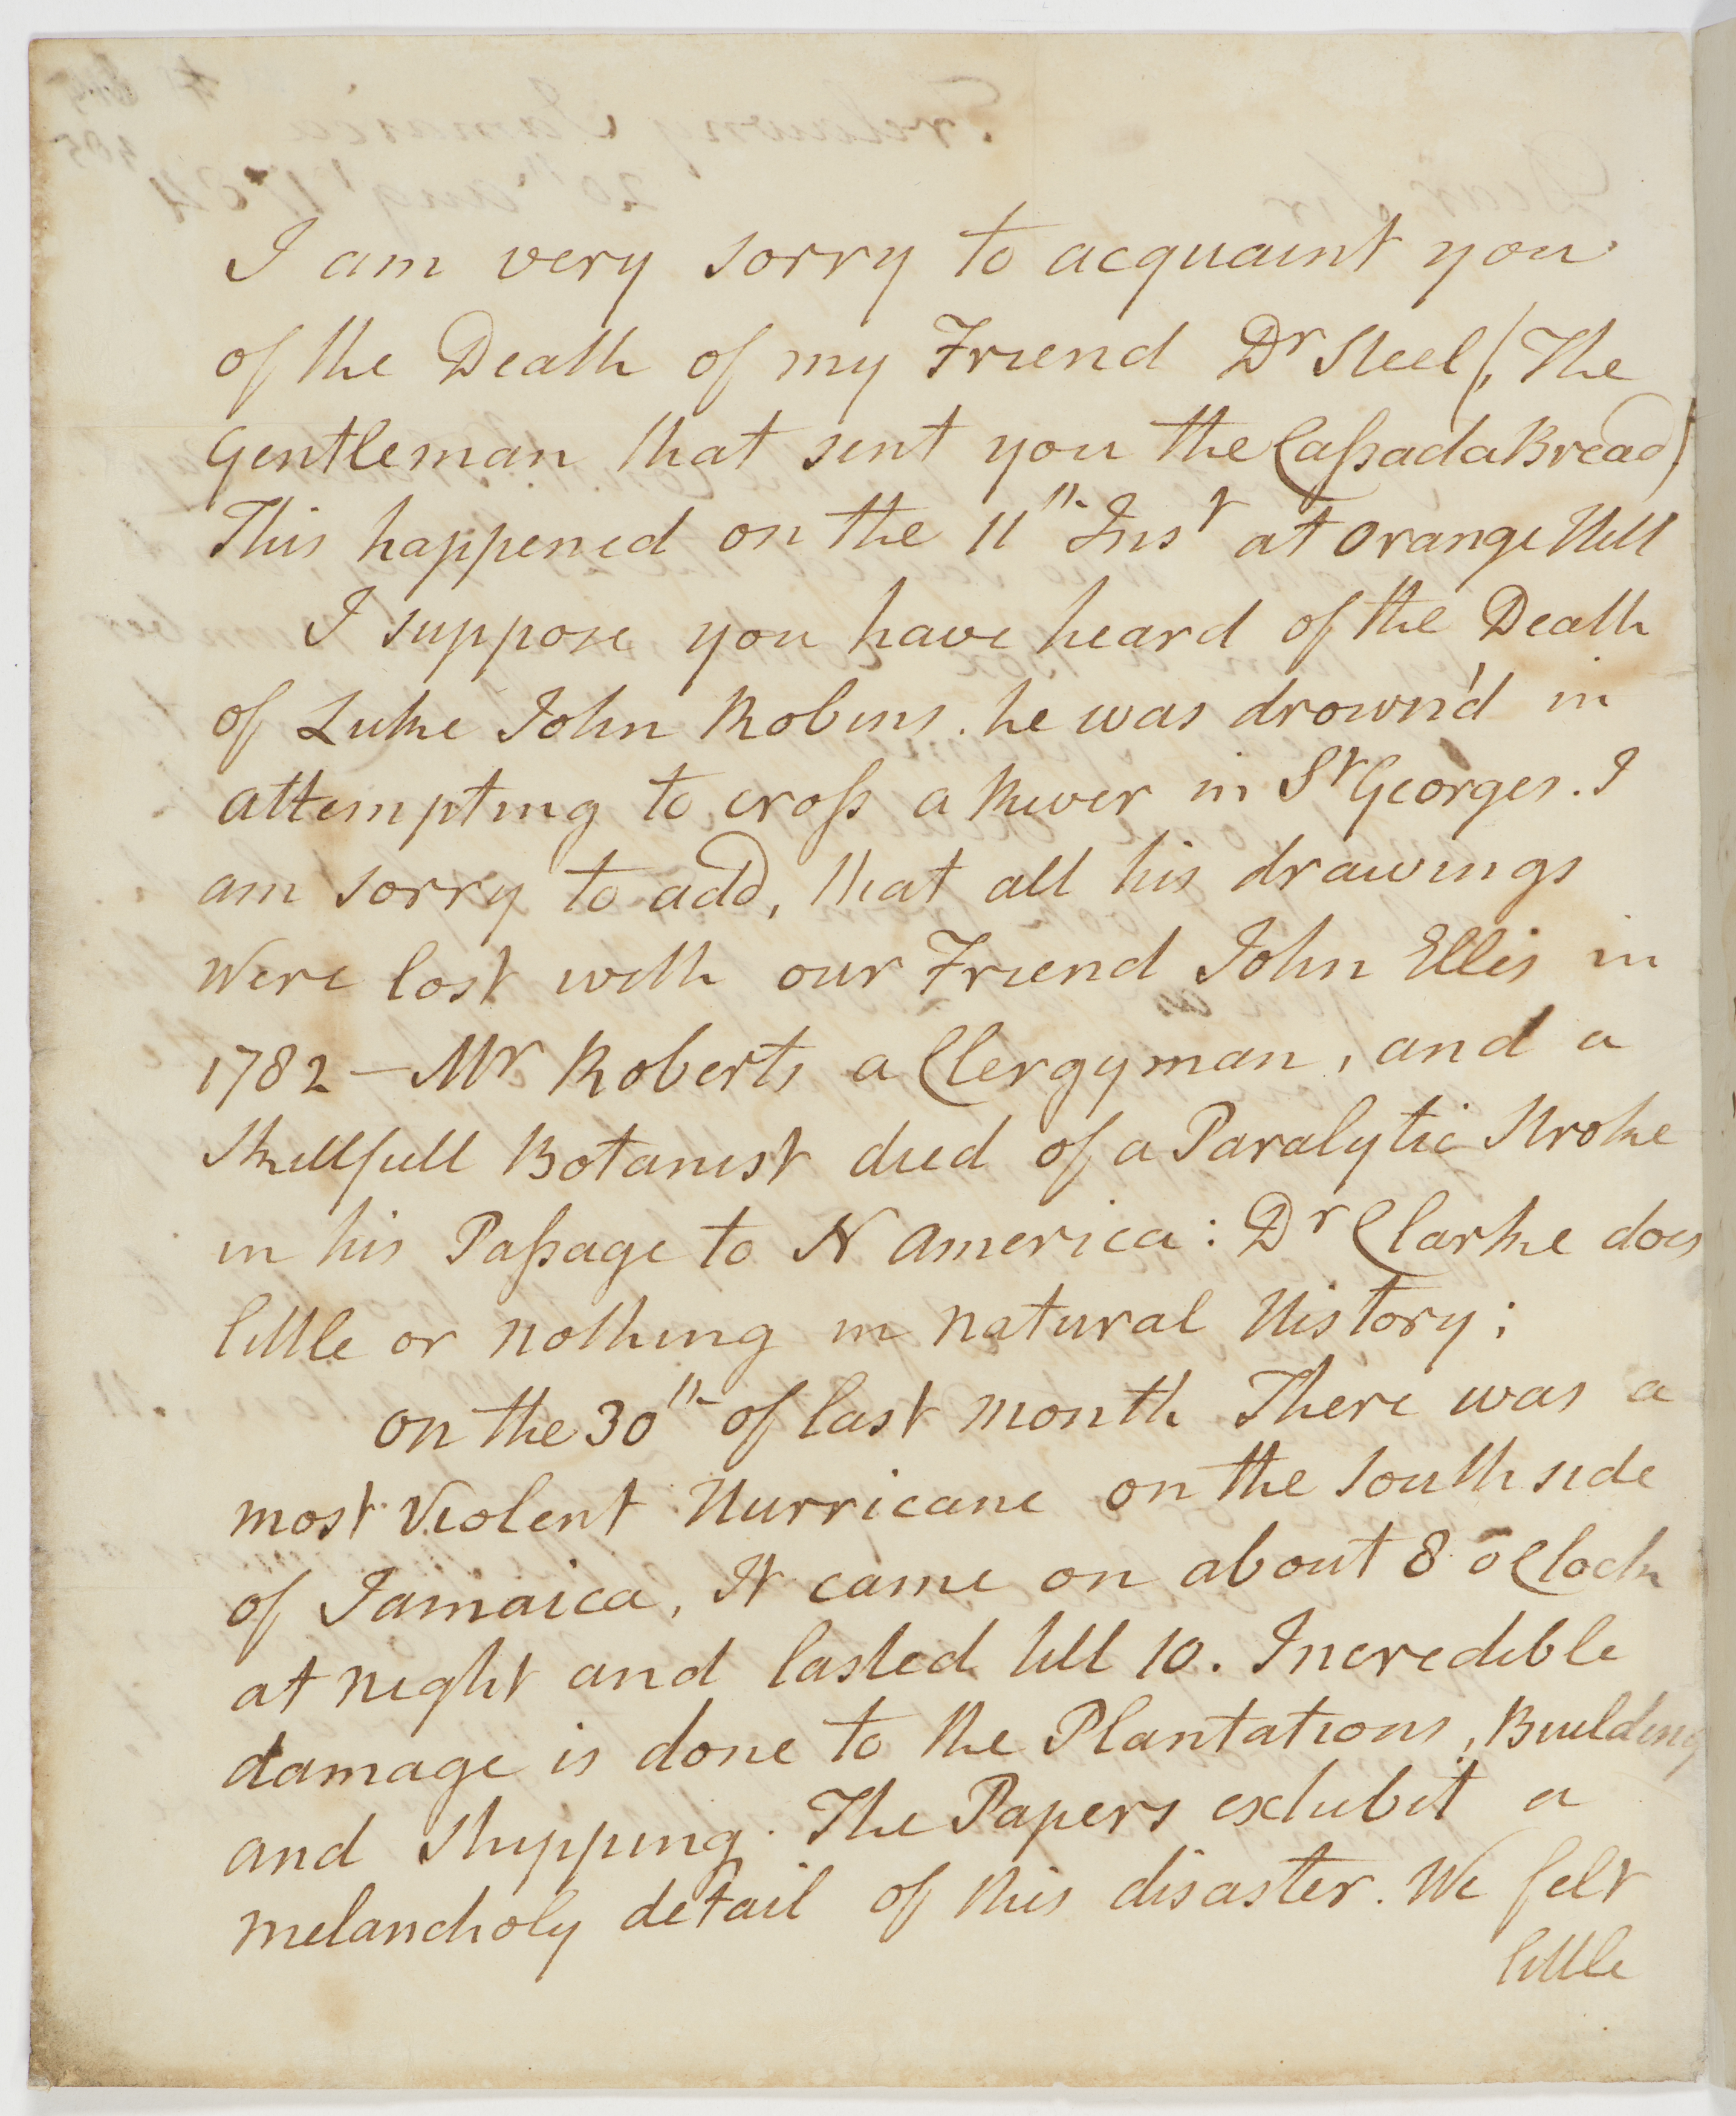 I am very sorry to acquaint you
of the Death of my Friend Dr Steel (The
Gentleman that sent you the Caßada Bread)
This happened on the 11th Inst at Orange Hill
I suppose you have heard of the Death
of Luke John Robins. he was drown'd in
attempting to croß a River in St Georges. I
am sorry to add, that all his drawings
were lost with our Friend John Ellis in
1782 – Mr Roberts a Clergyman, and a
Skillfull Botanist died of a Paralytic Stroke
in his Paßage to N America: Dr Clarke does
little or nothing in natural History;
on the 30th of last month There was a
most Violent Hurricane on the South side
of Jamaica, It came on about 8 o Clock
at night and lasted till 10. Incredible
damage is done to the Plantations, Building
and Shipping. The Papers exhibit a
melancholy detail of this disaster. We felt
little